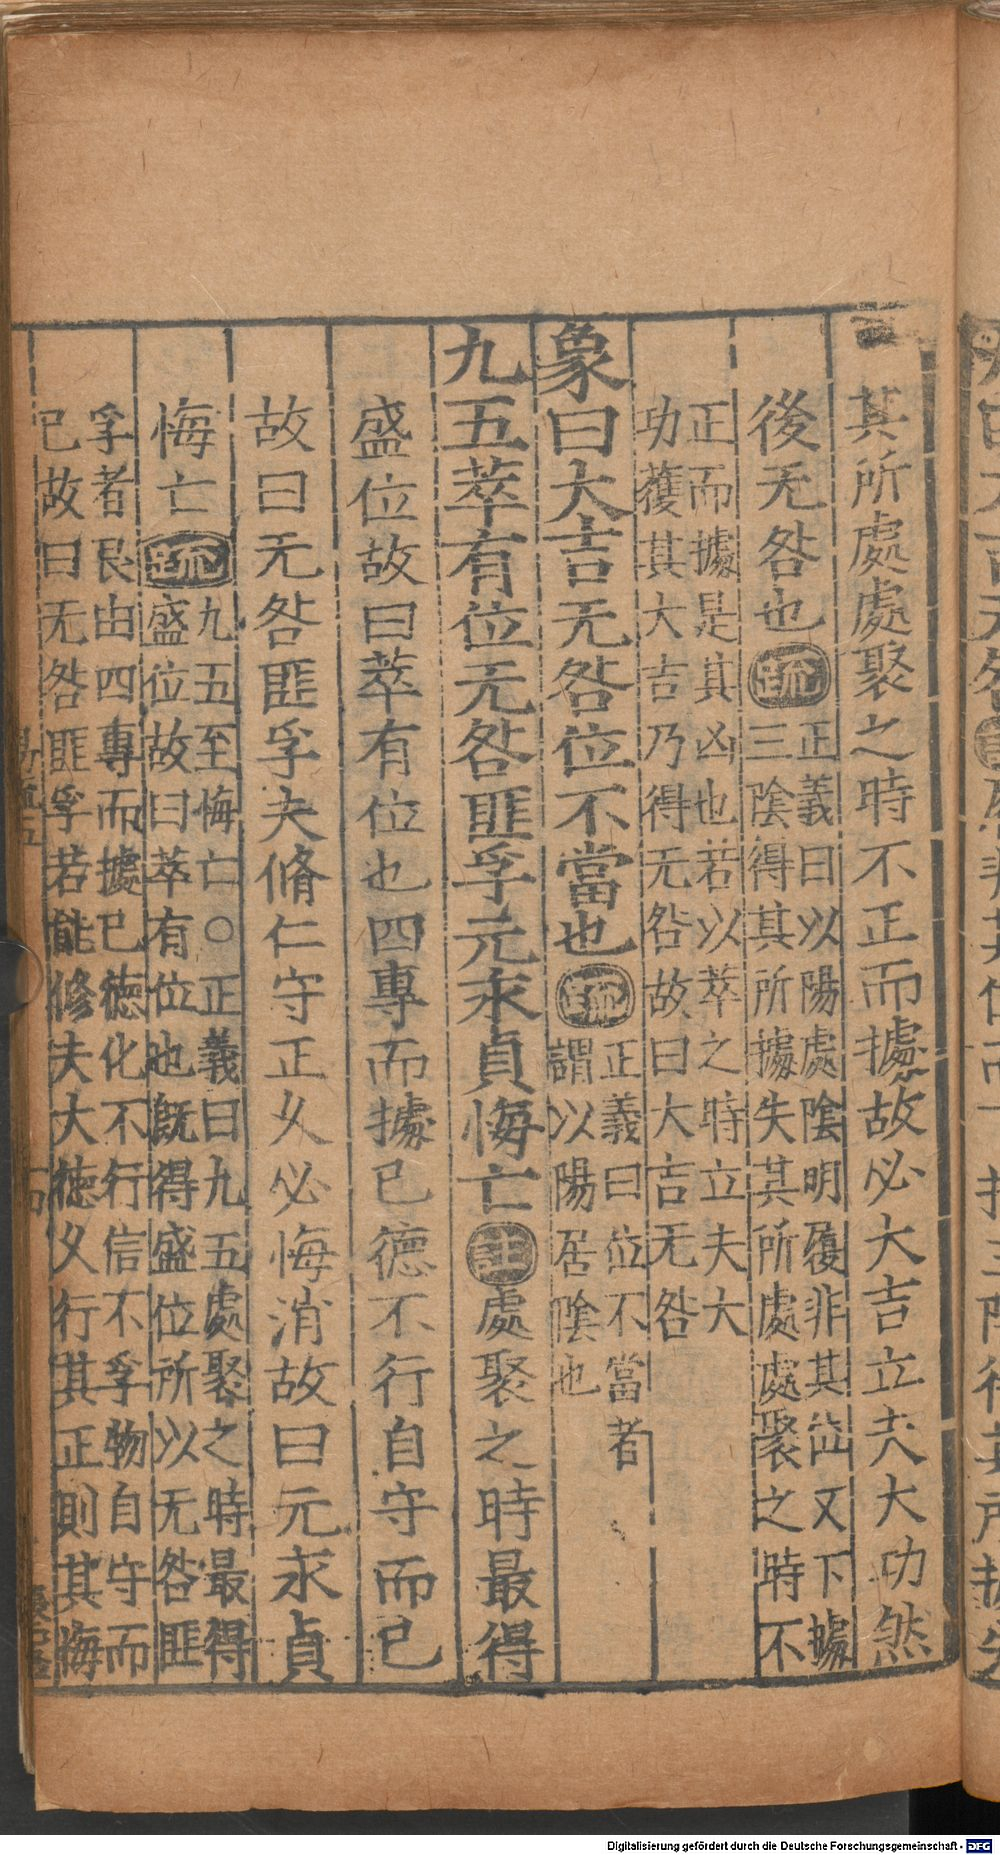 其所處處聚之時不正而據故必大吉立夫大功然
後无咎也疏正義曰以陽處陰明履非其位又下據
三陰得其所據失其所處處聚之時不
正而據是其凶也若以萃之時立夫大
功獲其大吉乃得无咎故曰大吉无咎
象曰大吉无咎位不當也疏正義曰位不當者
謂以陽居陰也
九五萃有位无咎匪孚元永貞悔亡註處聚之時最得
盛位故曰萃有位也四專而據已德不行自守而已
故曰无咎匪孚夫脩仁守正久必悔消故曰元永貞
悔亡疏九五至悔亡○正義曰九五處聚之時最得
盛位故曰萃有位也既得盛位所以无咎匪
孚者良由四專而據已德化不行信不孚物自守而
已故曰无咎匪孚若能修夫大德久行其正則其悔
Digitalisierung gefördert durch die Deutsche Forschungsgemeinschaft - DFG